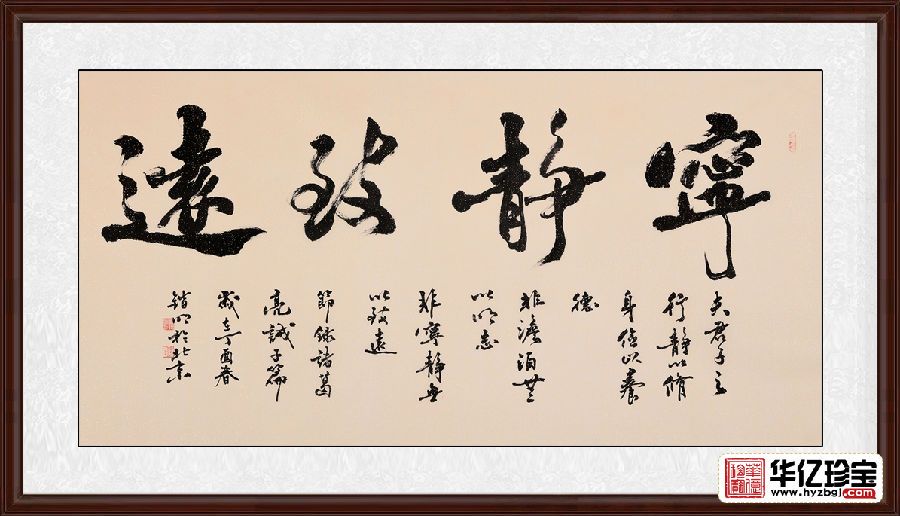 寧靜致遠
夫君子之
行靜以脩
身儉以養
德
非澹泊無
以明志
非寧靜無
以致遠
節錄諸葛
亮誡子篇
歲在丁酉春
於北京
华亿珍宝
www.hyzbgj.com